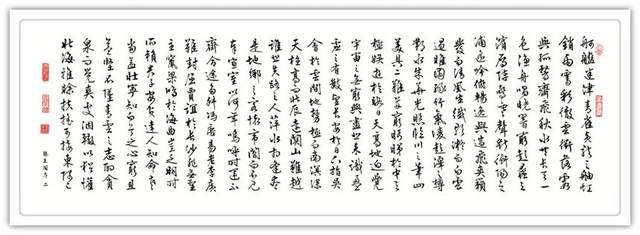 舸艦迷津青雀黃龍之舳虹
銷雨霽彩徹雲衢落霞
與孤鶩齊飛秋水共長天一
色漁舟唱晚響窮彭蠡之
濱雁陣驚寒聲斷衡陽之
浦遙吟俯暢逸興遄飛爽籟
發而清風生纖歌凝而白雲
遏睢園綠竹氣凌彭澤之樽
鄴水朱華光照臨川之筆四
美具二難並窮睇眄於中天
極娛遊於暇日天高地迥覺
宇宙之無窮興盡悲來識盈
虛之有數望長安於日下指吳
會於雲間地勢極而南溟深
天柱高而北辰遠關山難越
誰悲失路之人萍水相逢盡
是他鄉之客懷帝閽而不見
奉宣室以何年嗚呼時運不
齊命途多舛馮唐易老李廣
難封屈賈誼於長沙非無聖
主竄梁鴻於海曲豈乏明時
所賴君子安貧達人知命老
當益壯寧知白首之心窮且
益堅不墜青雲之志酌貪
泉而覺爽處涸轍以猶懽
北海雖賒扶搖可接東隅已
滕王閣序 二